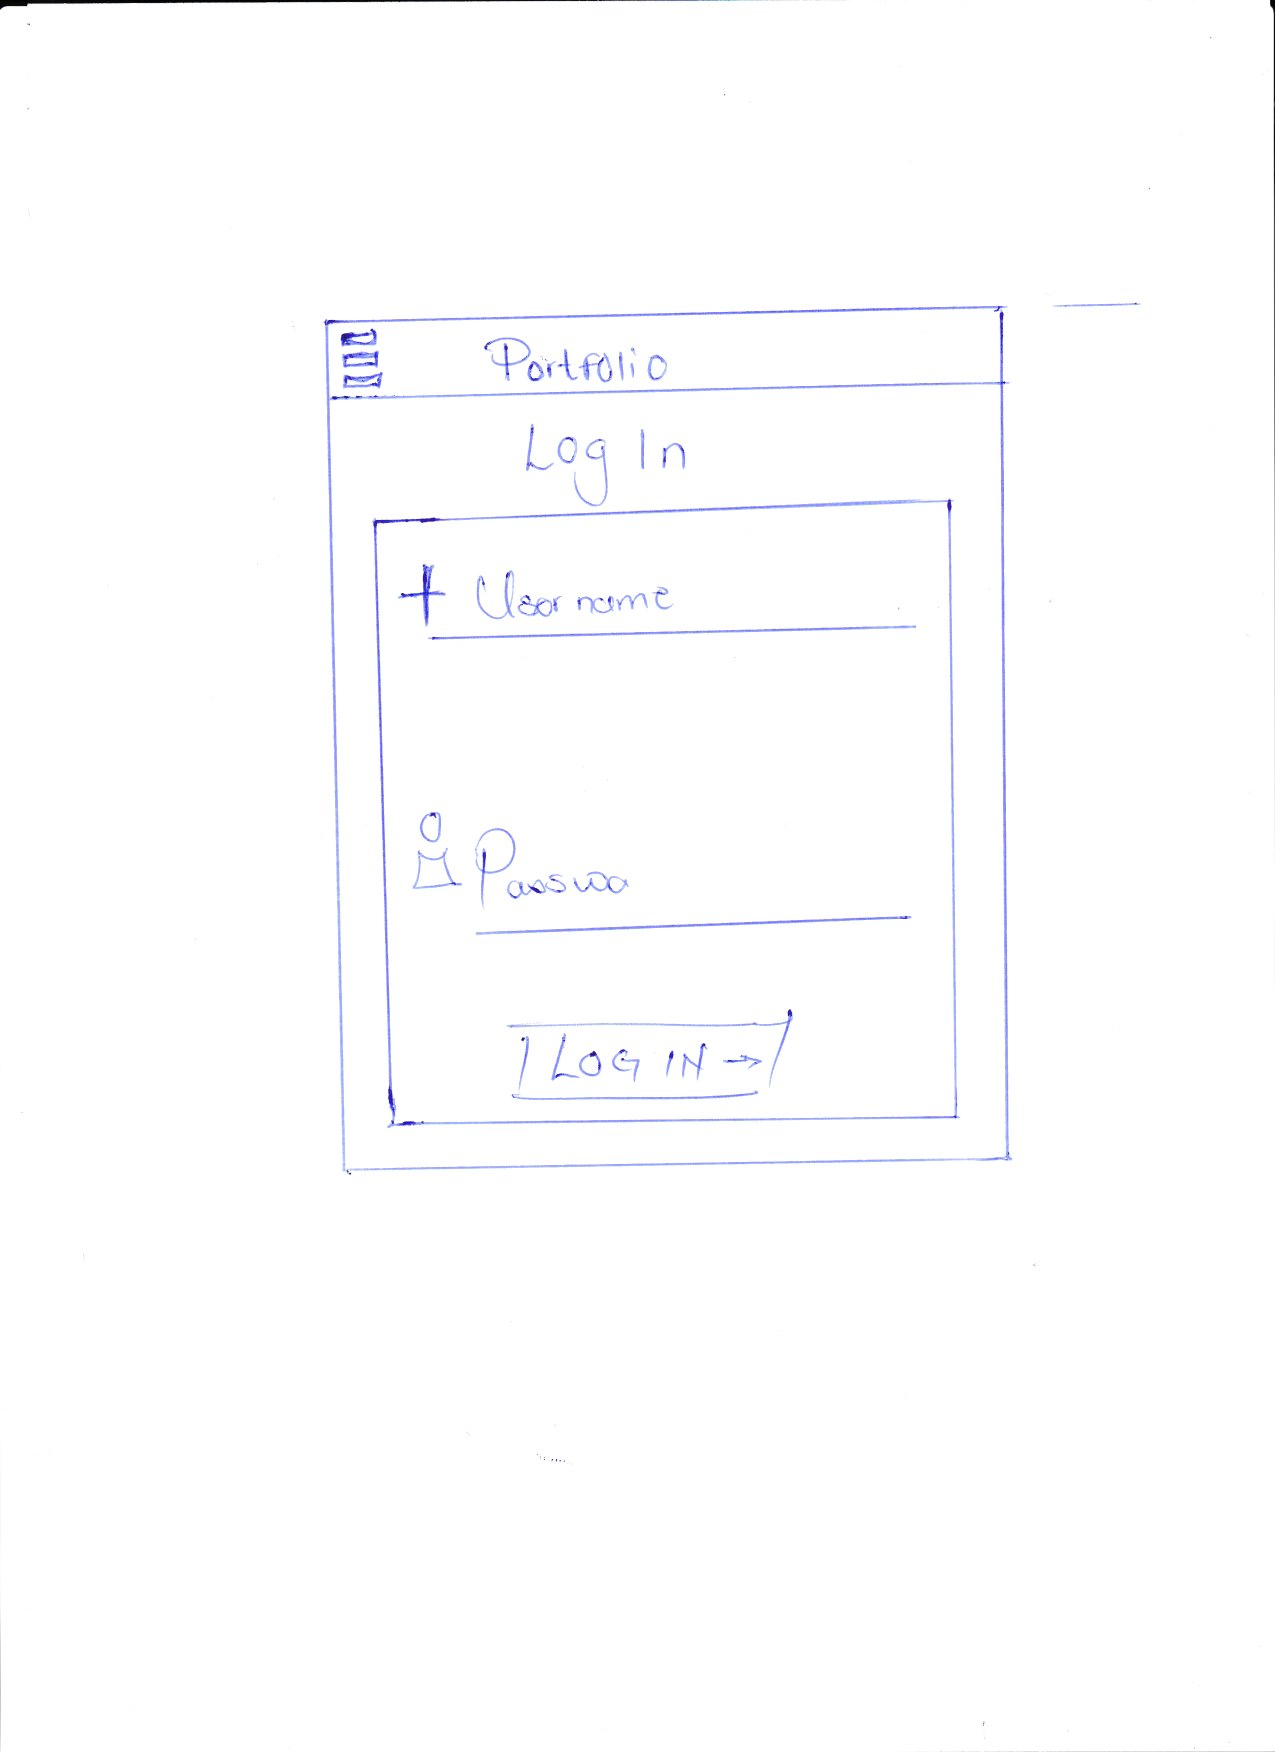 Portfolio
Log In
Username
Passwo
LOG IN →